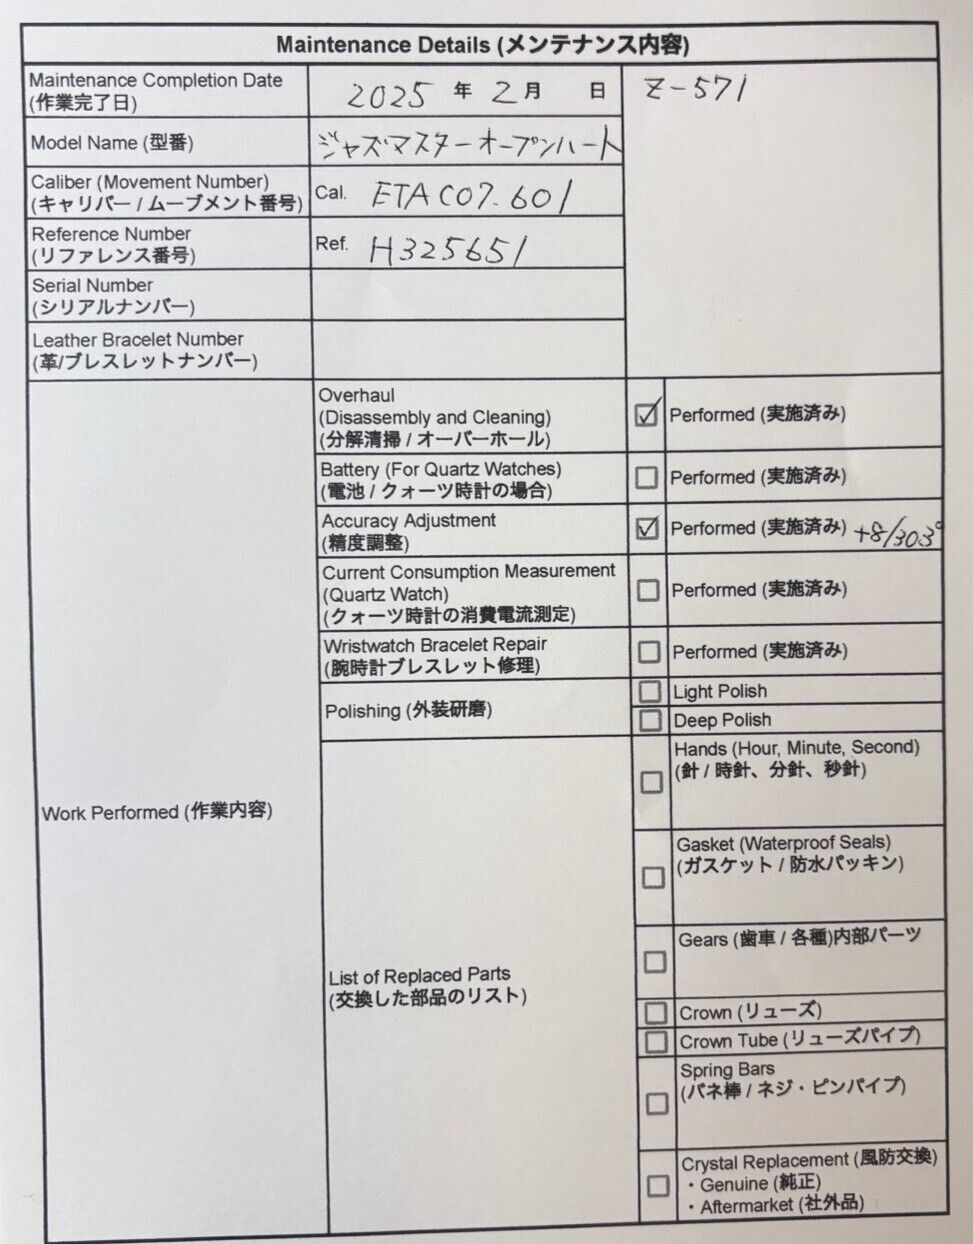 Maintenance Details (メンテナンス内容)
Maintenance Completion Date
(作業完了日)
2025 年 2月 日
Z-571
Model Name (型番)
ジャズマスターオープンハート
Caliber (Movement Number)
(キャリバー / ムーブメント番号)
Cal. ETA C07.601
Reference Number
(リファレンス番号)
Ref. H325651
Serial Number
(シリアルナンバー)
Leather Bracelet Number
(革/ブレスレットナンバー)
Work Performed (作業内容)
Overhaul
(Disassembly and Cleaning)
(分解清掃 / オーバーホール)
Performed (実施済み)
Battery (For Quartz Watches)
(電池 / クォーツ時計の場合)
Performed (実施済み)
Accuracy Adjustment
(精度調整)
Performed (実施済み) +8/303°
Current Consumption Measurement
(Quartz Watch)
(クォーツ時計の消費電流測定)
Performed (実施済み)
Wristwatch Bracelet Repair
(腕時計ブレスレット修理)
Performed (実施済み)
Polishing (外装研磨)
Light Polish
Deep Polish
List of Replaced Parts
(交換した部品のリスト)
Hands (Hour, Minute, Second)
(針 / 時針、分針、秒針)
Gasket (Waterproof Seals)
(ガスケット / 防水パッキン)
Gears (歯車 / 各種)内部パーツ
Crown (リューズ)
Crown Tube (リューズパイプ)
Spring Bars
(バネ棒 / ネジ・ピンパイプ)
Crystal Replacement (風防交換)
・Genuine (純正)
・Aftermarket (社外品)